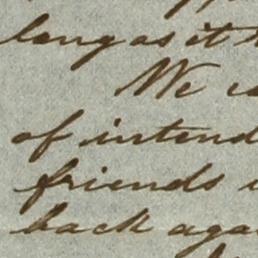 long as it
We
of intend
friends
back aga